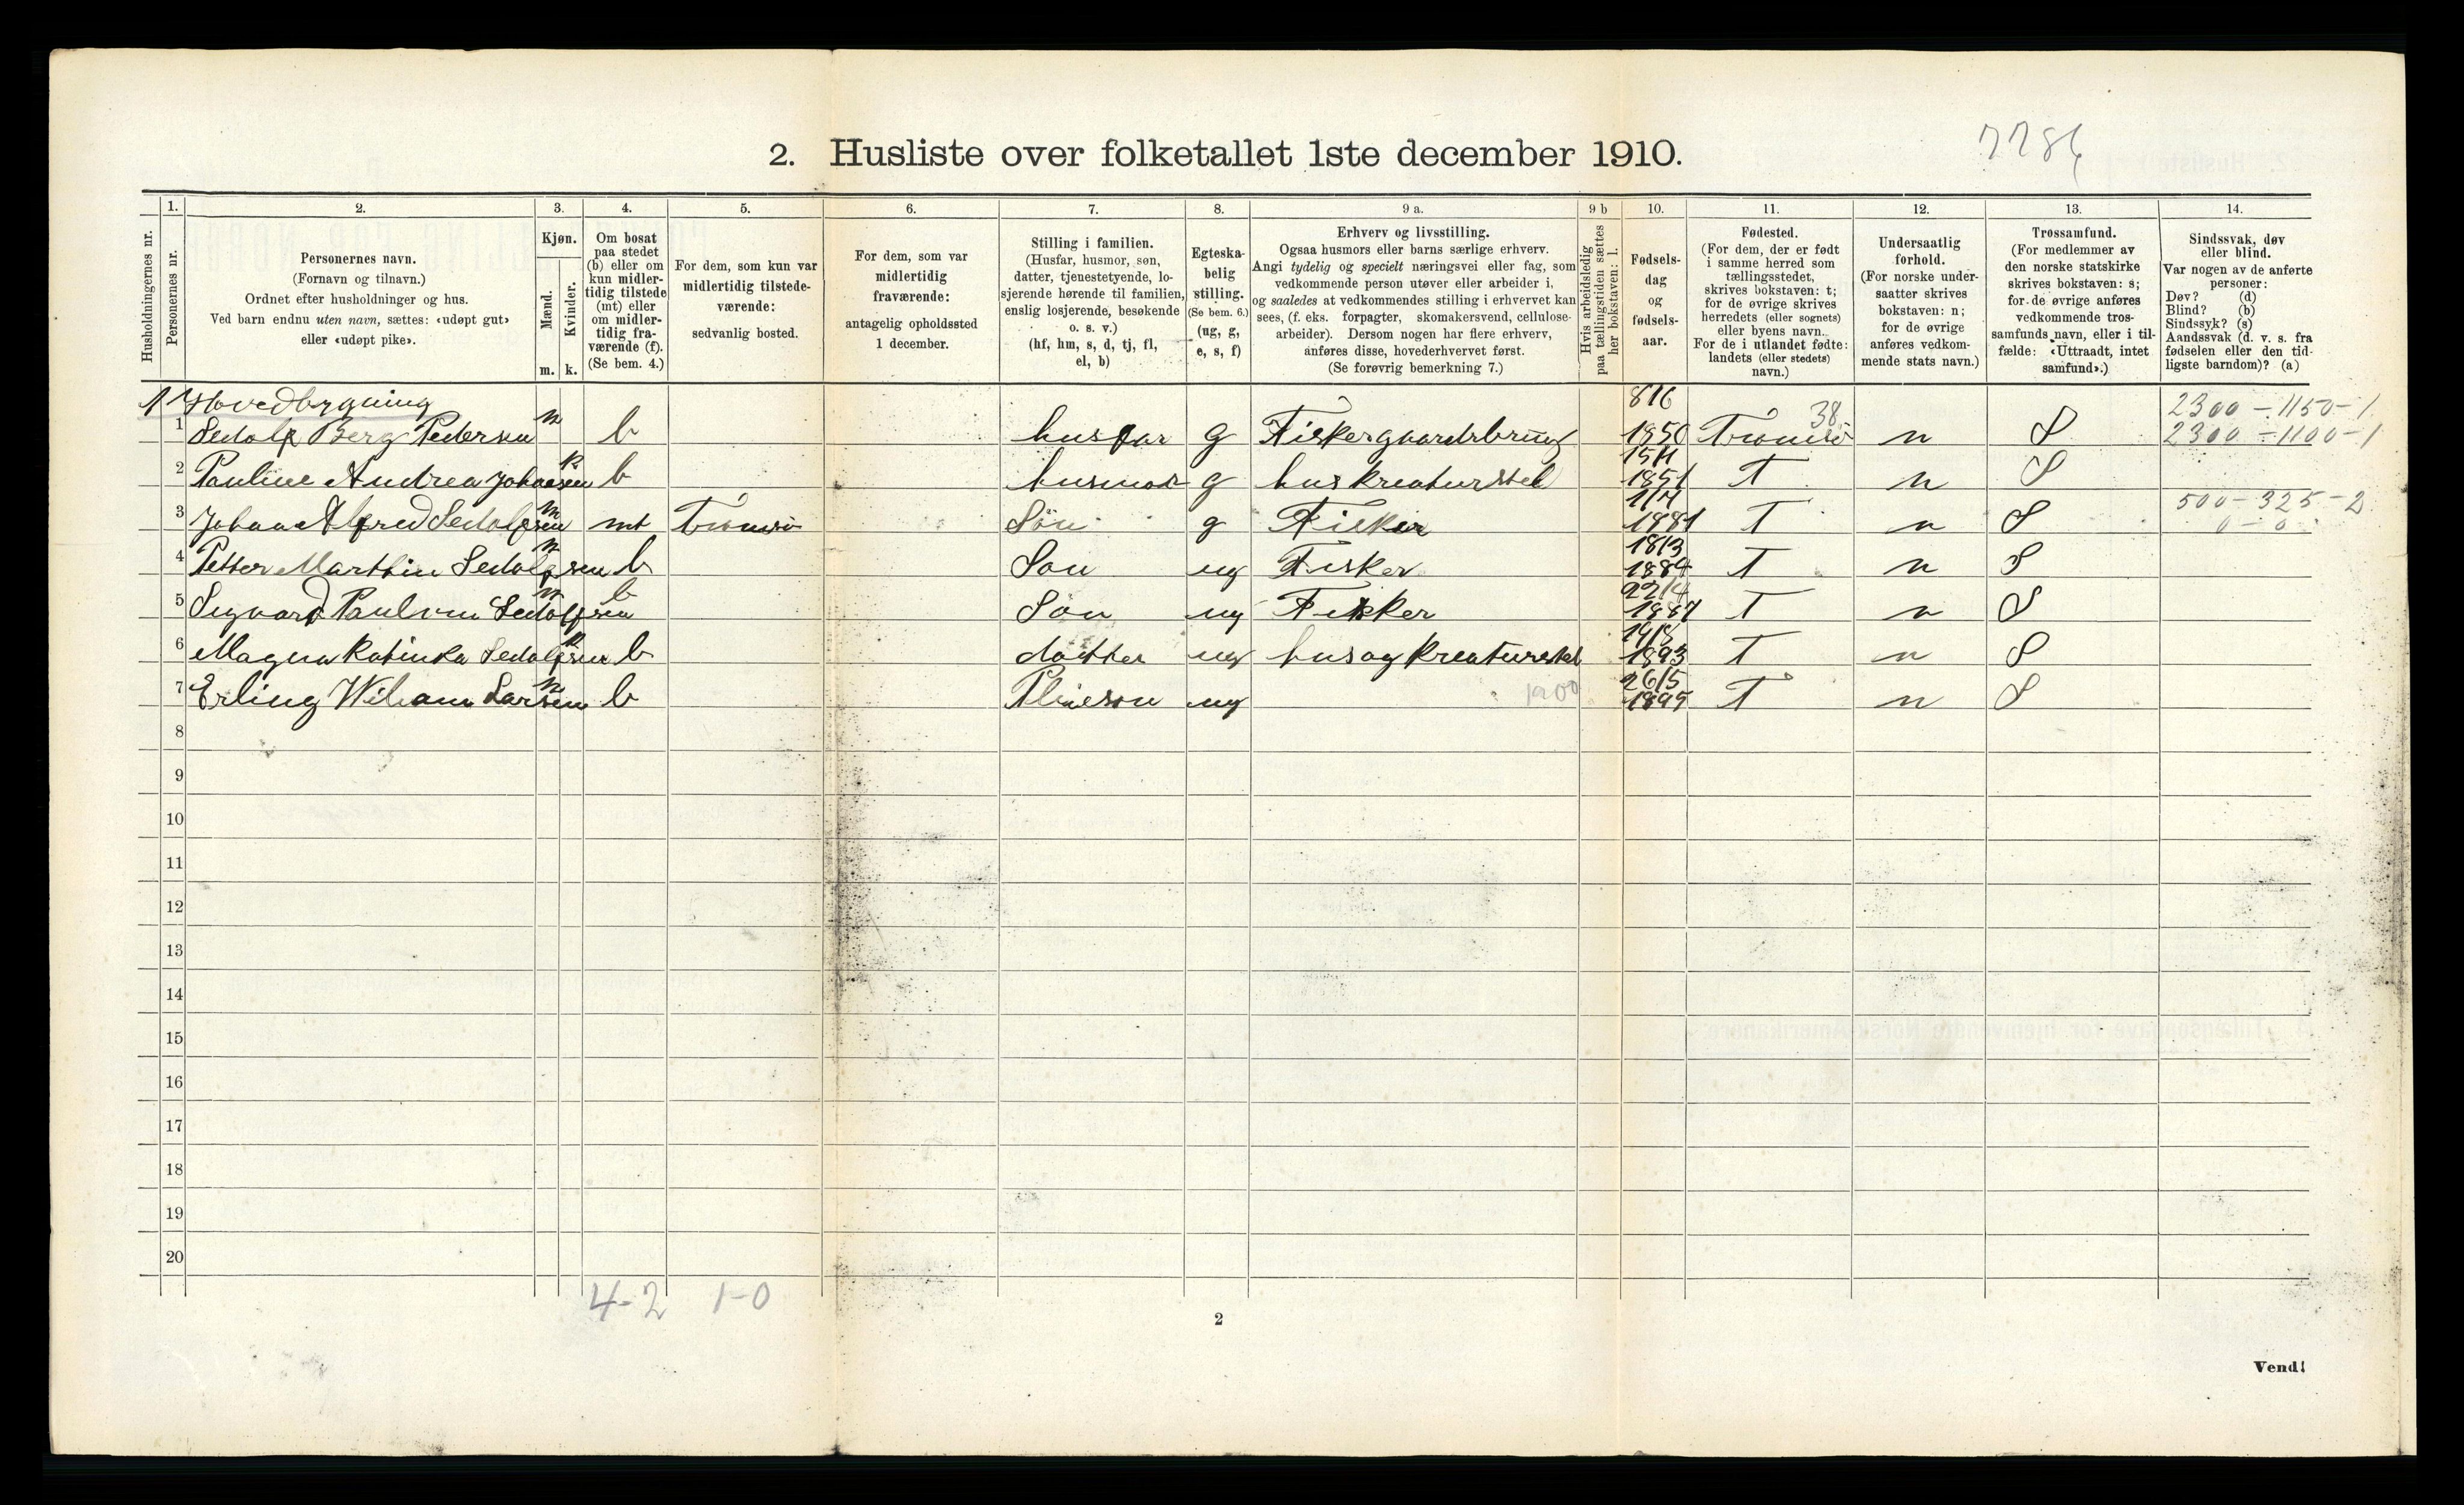 2. Husliste over folketallet 1ste december 1910.
1. 2. 3. 4. 5. 6. 7. 8. 9 a. 9 b 10. 11. 12. 13. 14.
Husholdningernes nr.
Personernes nr.
Personernes navn.
(Fornavn og tilnavn.)
Ordnet efter husholdninger og hus.
Ved barn endnu uten navn, sættes: «udøpt gut»
eller «udøpt pike».
Kjøn.
Mænd.
Kvinder.
m. k.
Om bosat
paa stedet
(b) eller om
kun midler-
tidig tilstede
(mt) eller
om midler-
tidig fra-
værende (f).
(Se bem. 4.)
For dem, som kun var
midlertidig tilstede-
værende:
sedvanlig bosted.
For dem, som var
midlertidig
fraværende:
antagelig opholdssted
1 december.
Stilling i familien.
(Husfar, husmor, søn,
datter, tjenestetyende, lo-
sjerende hørende til familien,
enslig losjerende, besøkende
o. s. v.)
(hf, hm, s, d, tj, fl,
el, b)
Egteska-
belig
stilling.
(Se bem. 6.)
(ug, g,
e, s, f)
Erhverv og livsstilling.
Ogsaa husmors eller barns særlige erhverv.
Angi tydelig og specielt næringsvei eller fag, som
vedkommende person utøver eller arbeider i,
og saaledes at vedkommendes stilling i erhvervet kan
sees, (f. eks. forpagter, skomakersvend, cellulose-
arbeider). Dersom nogen har flere erhverv,
anføres disse, hovederhvervet først.
(Se forøvrig bemerkning 7.)
Hvis arbeidsledig
paa tællingstiden sættes
her bokstaven: l.
Fødsels-
dag
og
fødsels-
aar.
Fødested.
(For dem, der er født
i samme herred som
tællingsstedet,
skrives bokstaven: t;
for de øvrige skrives
herredets (eller sognets)
eller byens navn.
For de i utlandet fødte:
landets (eller stedets)
navn.)
Undersaatlig
forhold.
(For norske under-
saatter skrives
bokstaven: n;
for de øvrige
anføres vedkom-
mende stats navn.)
Trossamfund.
(For medlemmer av
den norske statskirke
skrives bokstaven: s;
for de øvrige anføres
vedkommende tros-
samfunds navn, eller i til-
fælde: «Uttraadt, intet
samfund».)
Sindssvak, døv
eller blind.
Var nogen av de anførte
personer:
Døv? (d)
Blind? (b)
Sindssyk? (s)
Aandssvak (d. v. s. fra
fødselen eller den tid-
ligste barndom)? (a)
1 Hovedbygning 8/6 2300 - 1150 - 1
1 Sedolf Berg Pedersen m b husfar g Fisker gaardsbrug 1850 Tromsö 38 n S 2300 - 1100 - 1
2 Pauline Andrea Johansen k b husmor g hus kreaturstel 15/11 1851 T n S
3 Johan Alfred Sedolfsen m mt Tromsö Sön g Fisker 1/7 1881 T n S 500 - 325 - 2
0 - 0
4 Petter Marthin Sedolfsen m b Son ug Fisker 18/3 1884 T n S
5 Sigvard Paulvin Sedolfsen m b Sön ug Fisker 22/4 1887 T n S
6 Magna Katinka Sedolfsen k b datter ug hus og kreaturstel 14/8 1893 T n S
7 Erling Wiliam Larsen m b Pleieson ug 26/5 1895 T n S
8
9
10
11
12
13
14
15
16
17
18
19
20
4-2 1-0
2
Vend!